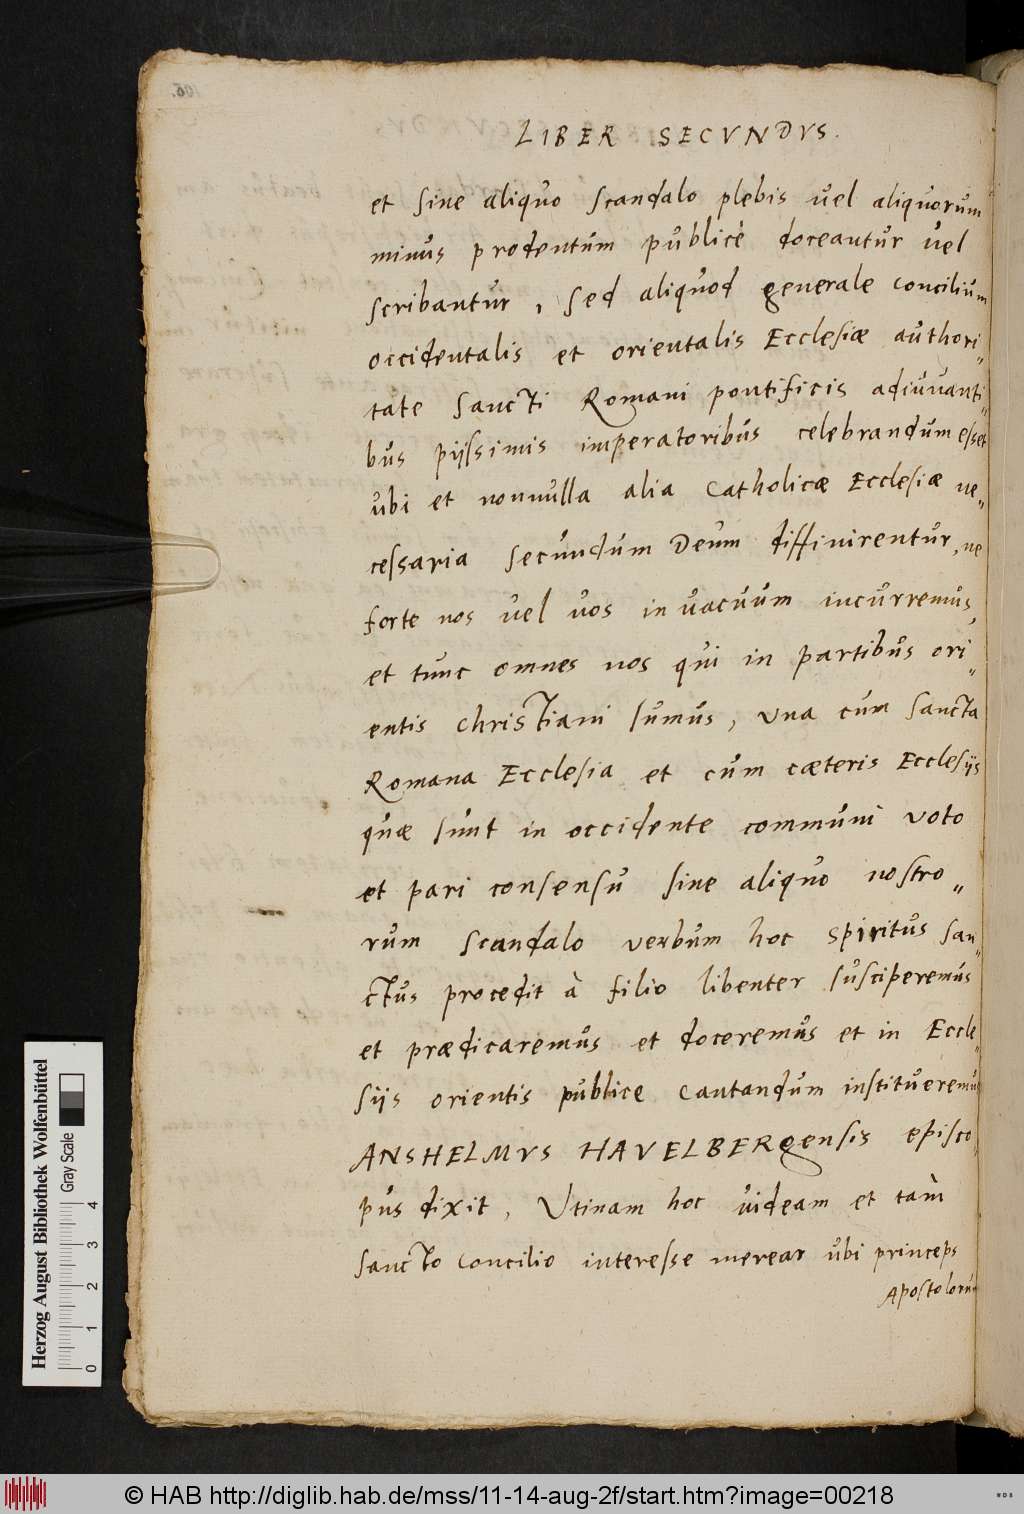 LIBER SECVNDVS.
et sine aliquo scandalo plebis vel aliquorum
minus prodentum publicè doceantur vel
scribantur, sed aliquod generale concilium
occidentalis et orientalis Ecclesiæ authori„
tate sancti Romani pontificis adiuvanti„
bus pijssimis imperatoribus celebrandum esset
ubi et nonnulla alia catholicæ Ecclesiæ ne„
cessaria secundum Deum diffinirentur, ne
forte nos vel vos in vacuum incurremus,
et tunc omnes nos qui in partibus ori„
entis christiani sumus, una cum sancta
Romana Ecclesia et cum cæteris Ecclesijs
quæ sunt in occidente communi voto
et pari consensu sine aliquo nostro„
rum scandalo verbum hoc spiritus san„
ctus procedit à filio libenter susciperemus
et prædicaremus et doceremus et in Eccle„
sijs orientis publice cantandum institueremus
ANSHELMVS HAVELBERgensis episco„
pus dixit, Utinam hoc videam et tam
sancto concilio interesse merear ubi princeps
Apostolorum
106.
Herzog August Bibliothek Wolfenbüttel
Gray Scale
0 1 2 3 4
© HAB http://diglib.hab.de/mss/11-14-aug-2f/start.htm?image=00218